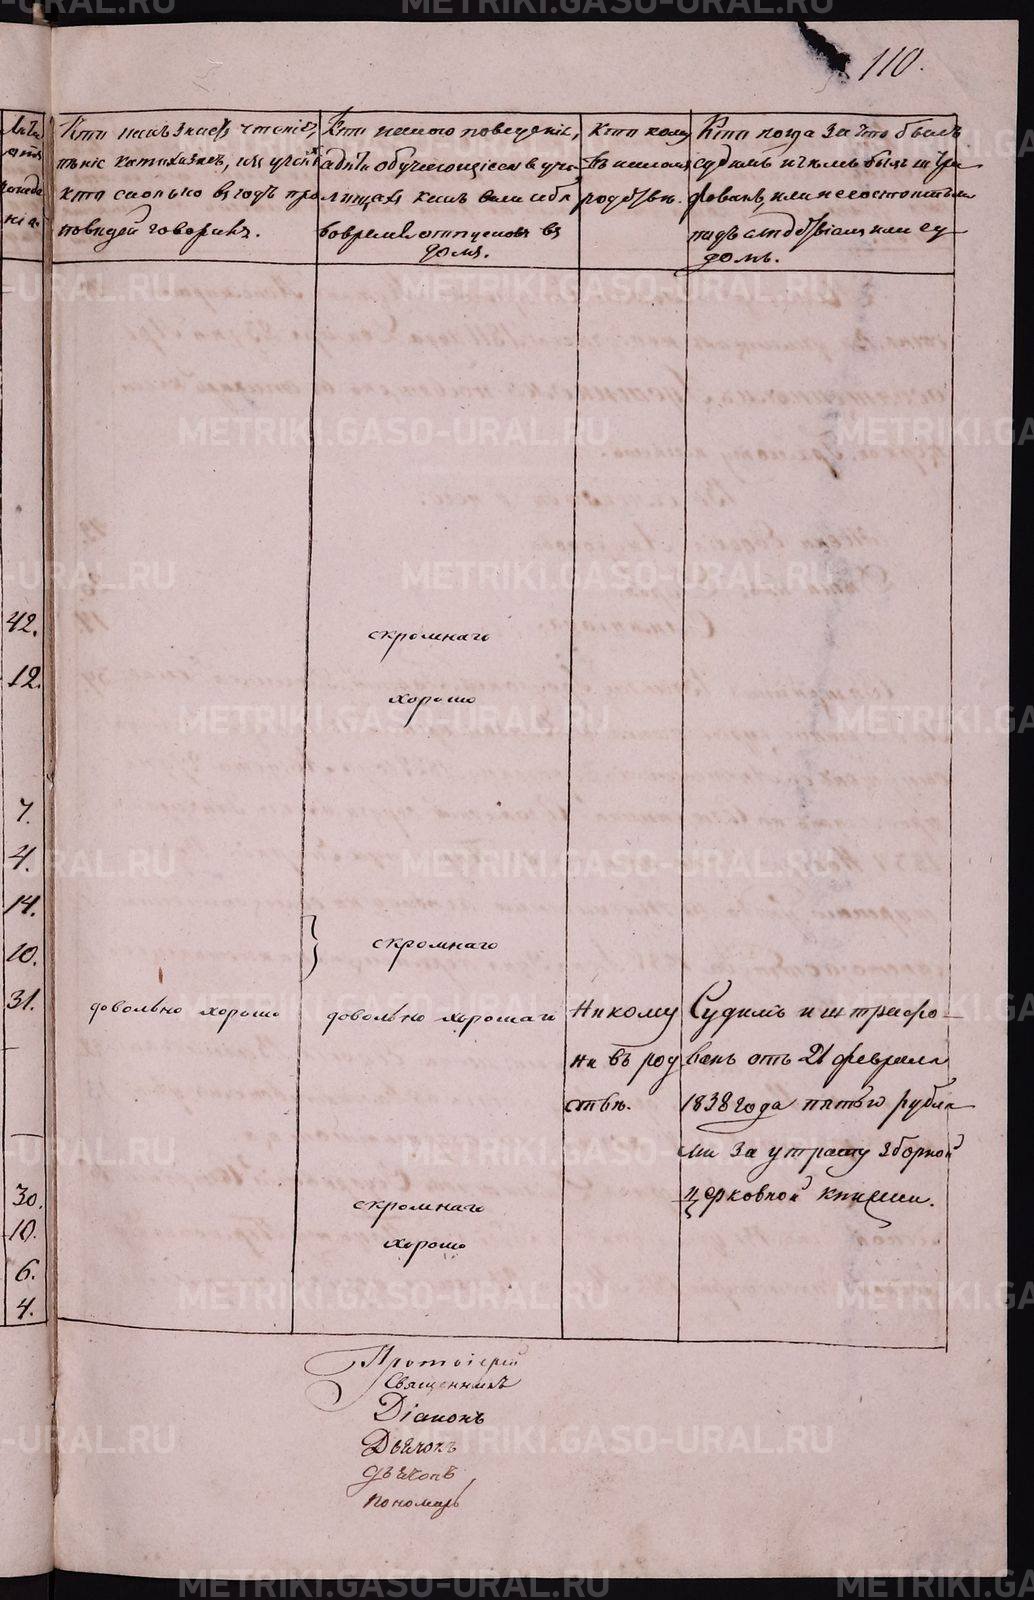 110.
Лѣта
отъ
рожде
нія.
Кто какъ знаетъ чтеніе,
пѣніе катихизисъ, или уставъ
кто сколько въ годъ про
повѣдей говорилъ.
Кто какого поведенія,
а дѣти обучающіеся в учи
лищахъ какъ вели себя
во время отпусковъ въ
домъ.
Кто кому
въ какомъ
родствѣ.
Кто когда за что былъ
судимъ и чѣмъ былъ штра
фованъ, или не состоитъ ли
подъ слѣдствіемъ или су
домъ.
42.
скромнаго
12.
хорошо
7.
4.
14.
10.
скромнаго
31.
довольно хорошо
довольно хорошаго
Никому
не въ род
ствѣ.
Судимъ и штрафо-
ванъ отъ 21 февраля
1838 года пятью рубля
ми за утрату зборной
церковной книжки.
30.
скромнаго
10.
хорошо
6.
4.
Протоіерей
Священникъ
Діаконъ
Дьячокъ
Дьячокъ
Пономарь
METRIKI.GASO-URAL.RU